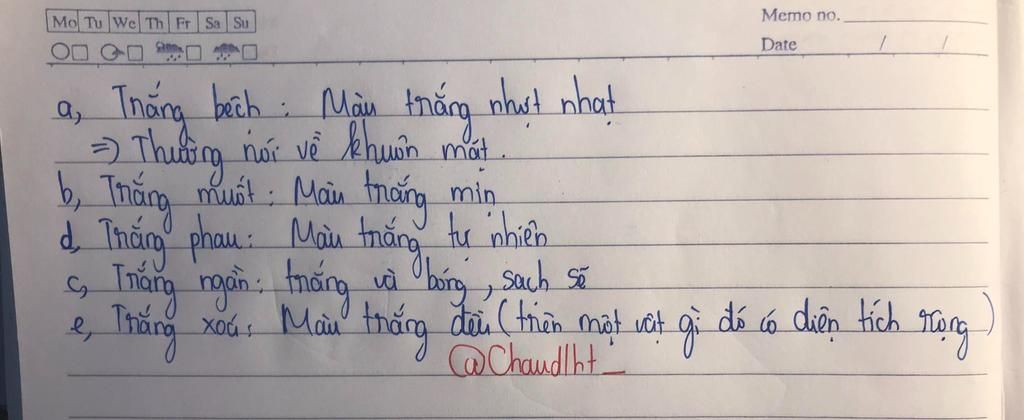 Mo Tu We Th Fr Sa Su
Memo no.
Date / /
a, Trắng bệch : Màu trắng nhợt nhạt
=> Thường nói về khuôn mặt.
b, Trắng muốt : Màu trắng mịn
d, Trắng phau : Màu trắng tự nhiên
c, Trắng ngần : trắng và bóng, sạch sẽ
e, Trắng xoá : Màu trắng đều (trên một vật gì đó có diện tích rộng)
@Chaudlht_